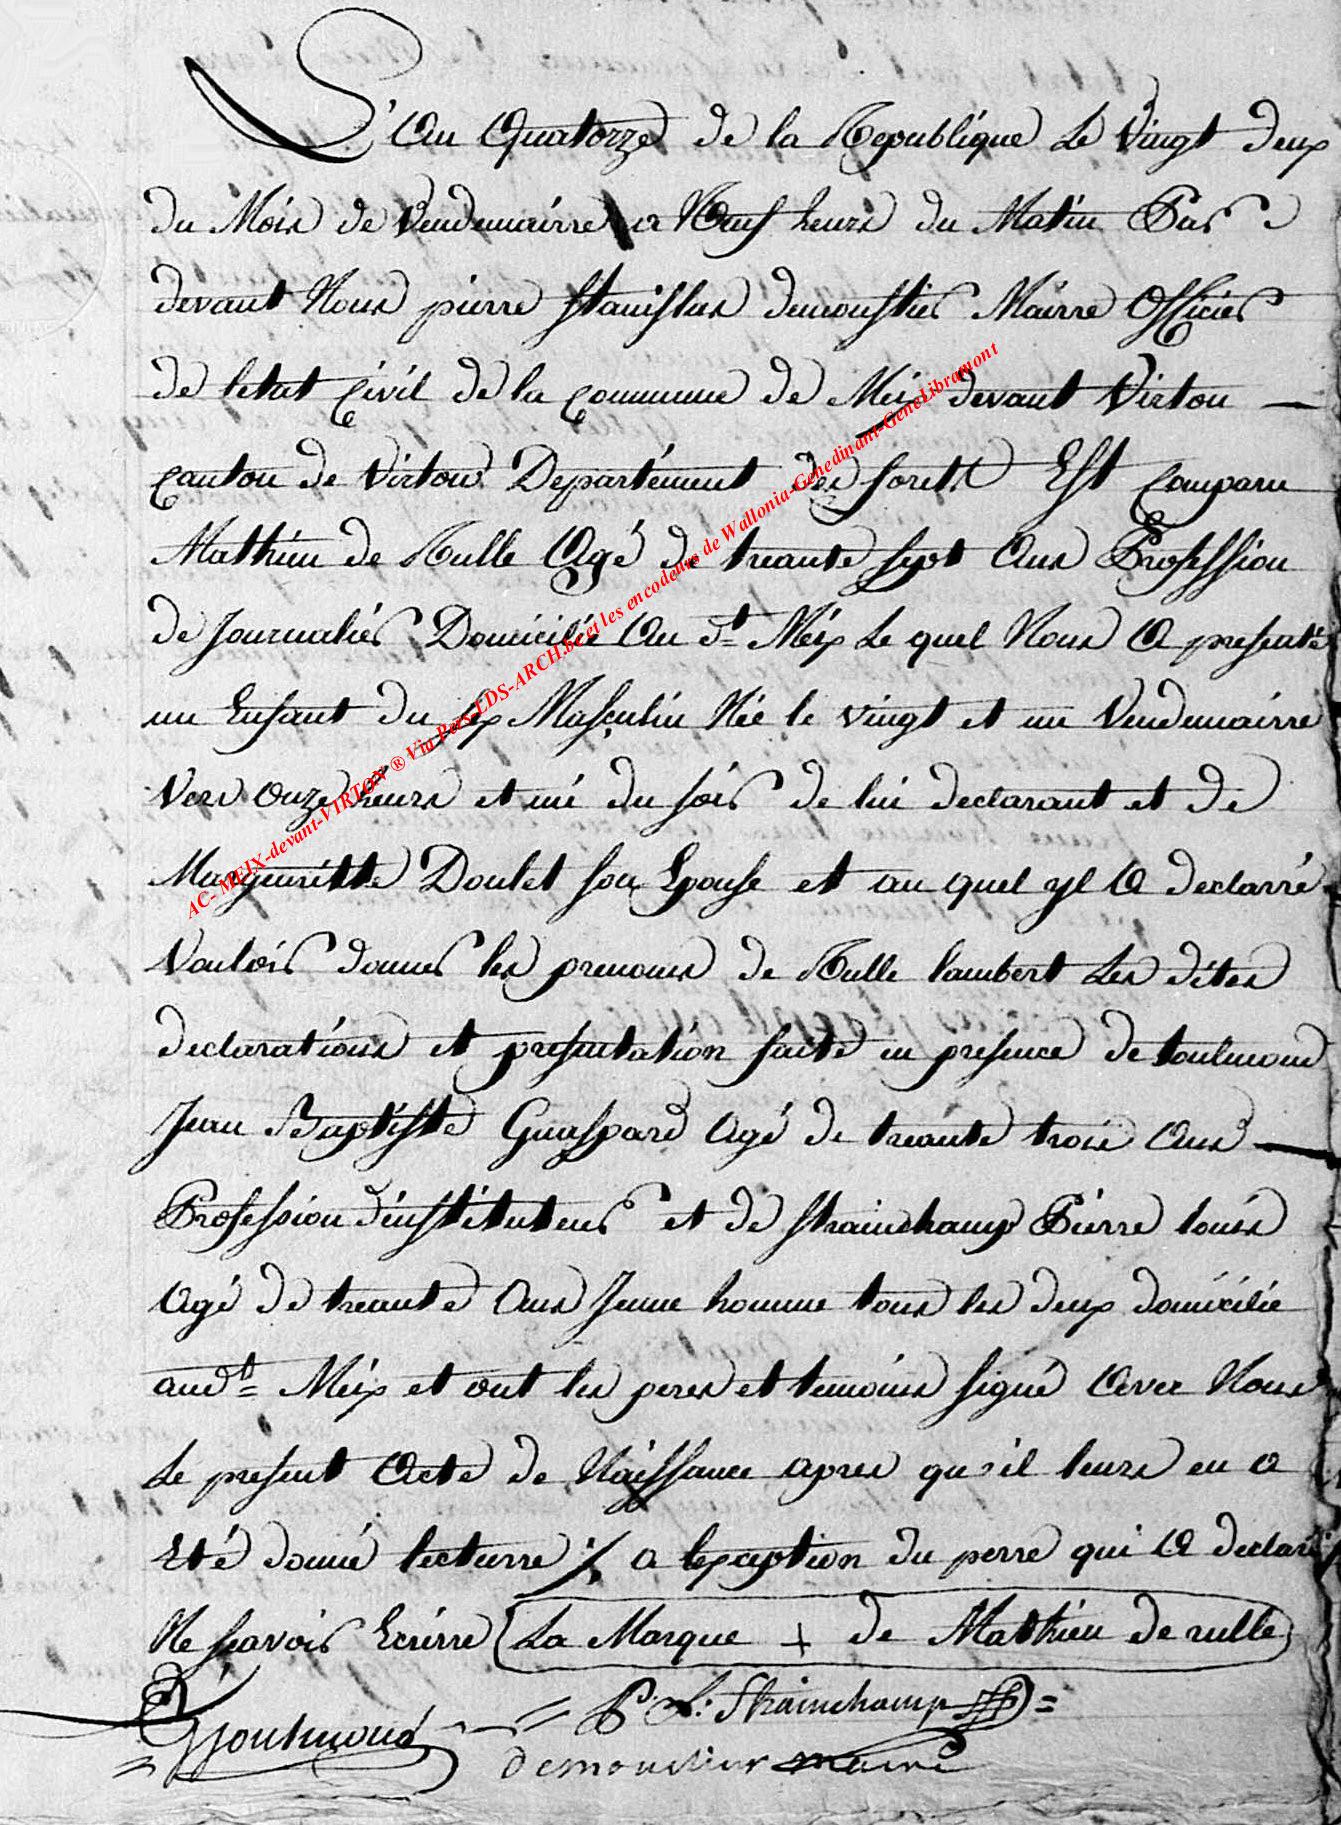 L'An Quatorze de la Republique Le Vingt deux
du Mois de Vendemairre a Neuf heurs du Matin Par
devant Nous pierre Stanislas demoustier Mairre Officier
de letat Civil de la Commune de Meix devant Virton —
Canton de Virton Departément des forets Est Comparu
Mathieu de Rulle Agé de treante sept Ans Profession
de Journalier Domicilié Au dt Méix Le quel Nous A presenté
un Enfant du sex Masculin Née le vingt et un Vendemairre
Vers Onze heurs et mi du soir de lui declarant et de
Margueritte Doulet son Epouse et au quel yl A declarré
Vouloir donner les prenoms de Rulle lambert Les dites
declarations et presentation faite en presence de toulmond
Jean Baptiste Guaspard Agé de treante trois Ans —
Profession d'instituteur et de Strainchamp Pierre louis
Agé de treante Ans Jeune homme tous les deux domicilié
audt Méix et ont les peres et temoins signé Avec Nous
Le present Acte de Naissance apres qu'il leurs en a
Eté donné lecturre ./. a lexception du perre qui A declaré
Ne scavoir Ecrirre La Marque + de Mathieu de rulle
= P. L: Strainchamp =
JGJoulmond
demoustier maire
AC-MEIX-devant-VIRTON ® Via Pers-LDS-ARCH.be et les encodeurs de Wallonia-Genedinant-GeneLibramont